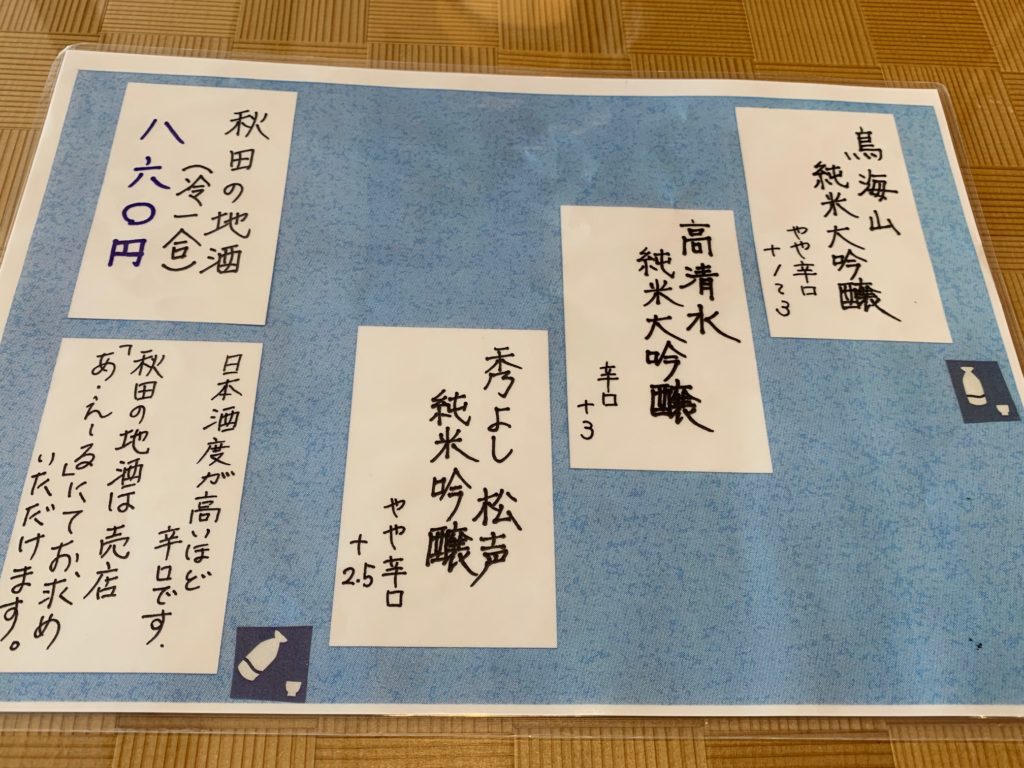 鳥海山
純米大吟醸
やや辛口
+1~3
高清水
純米大吟醸
辛口
+3
秀よし 松声
純米吟醸
やや辛口
+
2.5
秋田の地酒
(冷一合)
八六〇円
日本酒度が高いほど
辛口です.
「秋田の地酒は 売店
あ・えーる」にてお求め
いただけます。